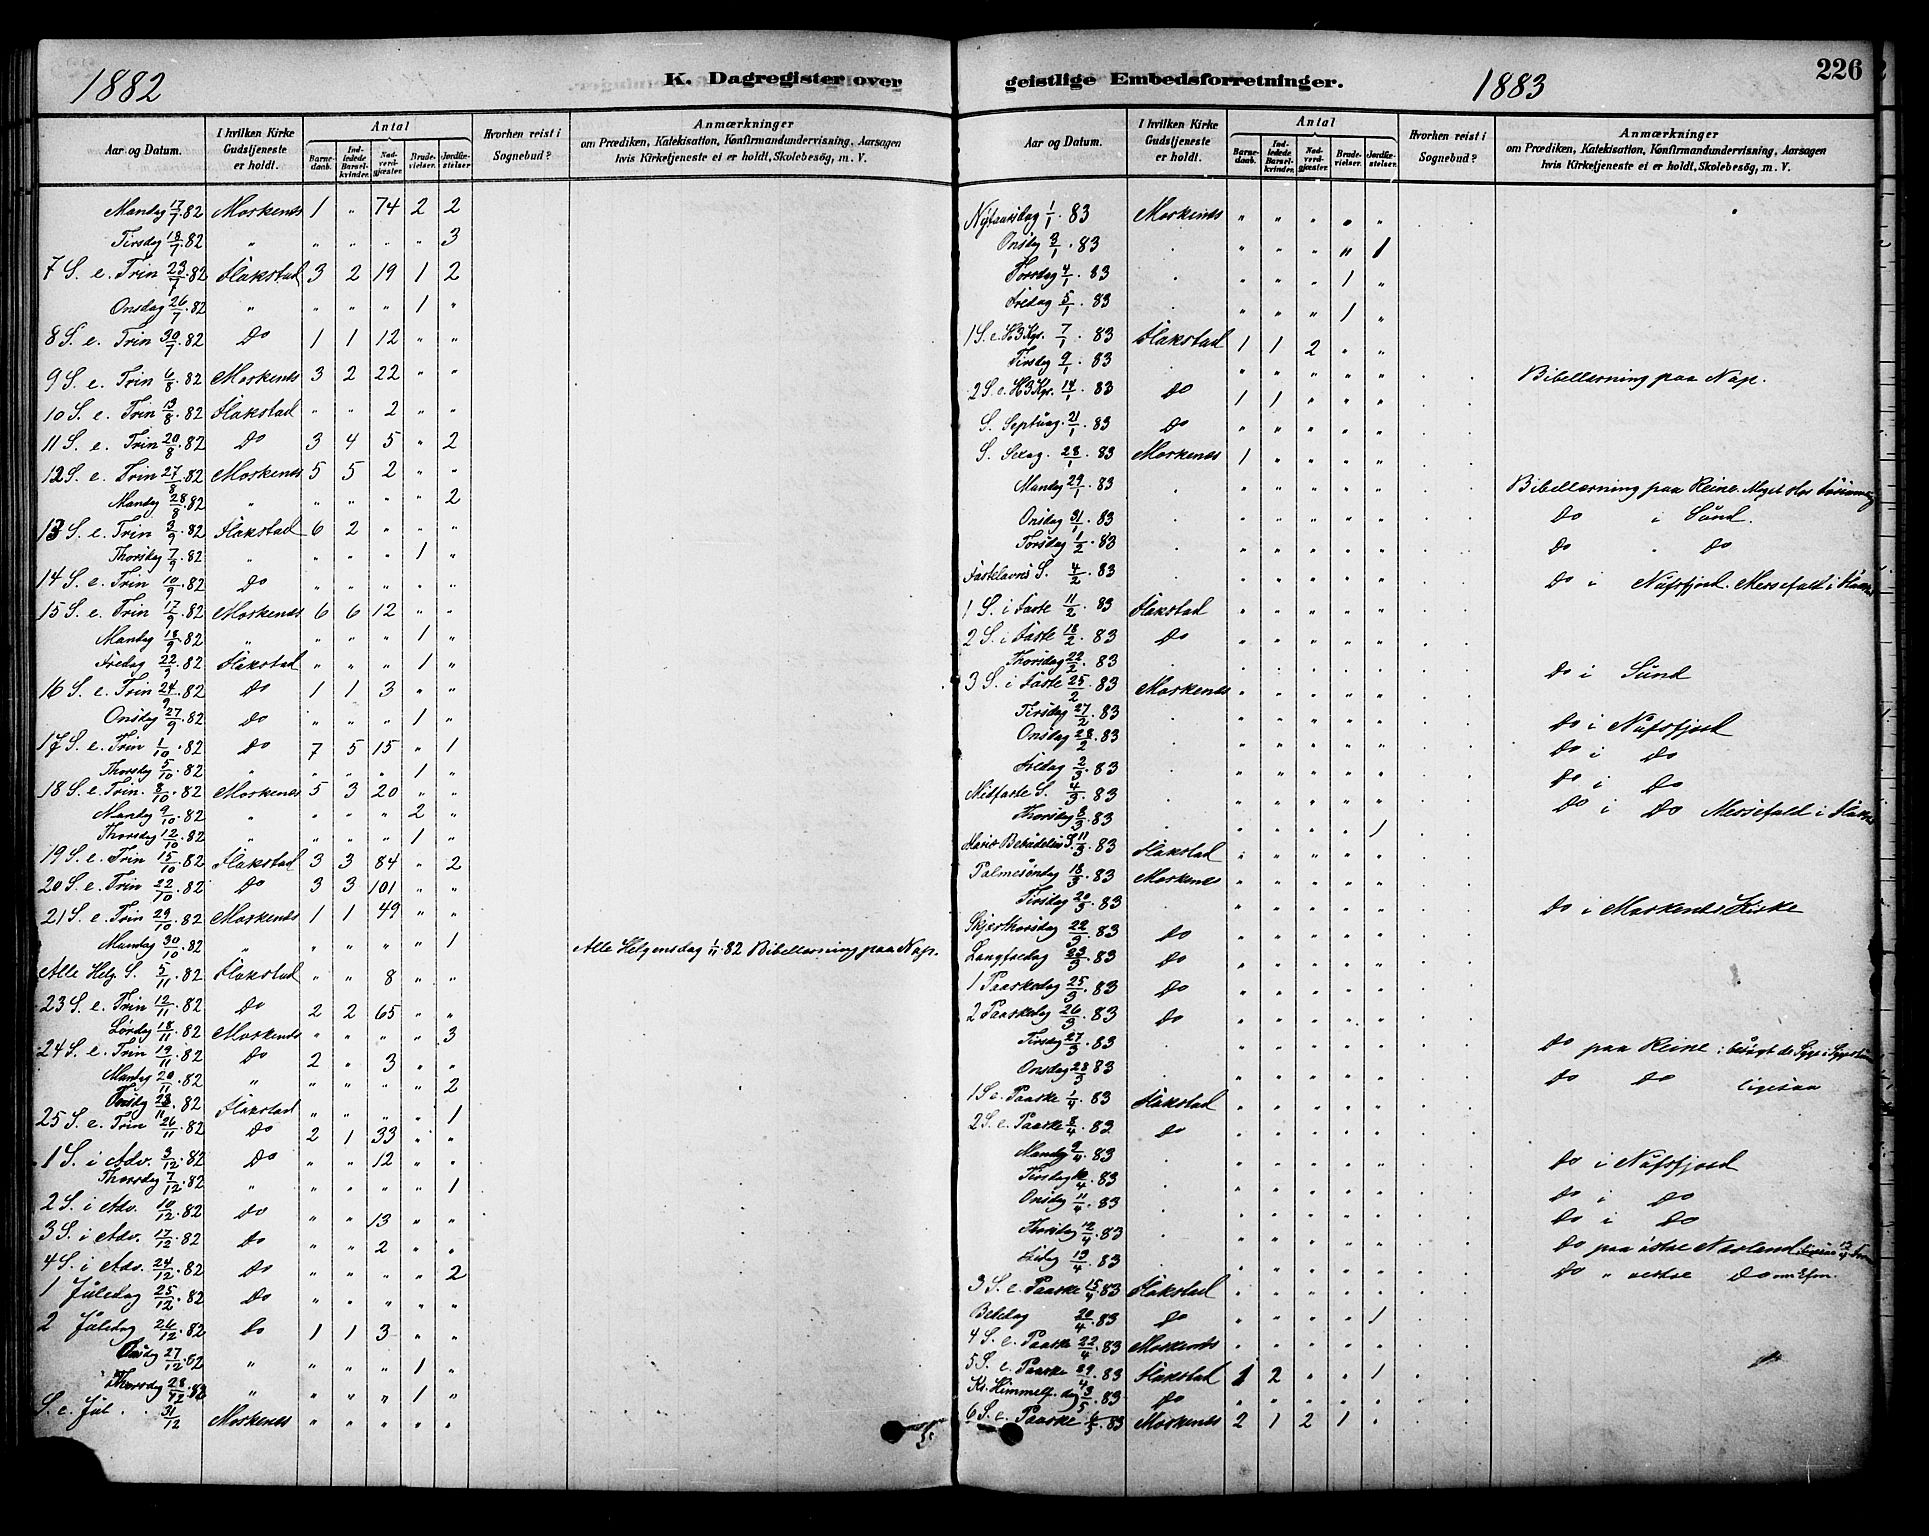 1882
K. Dagregister over
Aar og Datum.
I hvilken Kirke Gudstjeneste er holdt.
Antal
Barne-daab.
Ind-ledede Barsel-kvinder.
Nad-verd-gjæster.
Brude-vielser.
Jordfæ-stelser
Hvorhen reist i Sognebud?
Anmærkninger
om Prædiken, Katekisation, Konfirmandundervisning, Aarsagen
hvis Kirketjeneste ei er holdt, Skolebesøg, m. V.
Mandag 17/7. 82 Moskenes 1 " 74 2 2
Tirsdag 18/7. 82 " " " " " 3
7 S. e. Trin 23/7. 82 Flakstad 3 2 19 1 2
Onsdag 26/7. 82 " " " " 1 "
8 S. e. Trin 30/7. 82 Do 1 1 12 " "
9 S. e. Trin 6/8. 82 Moskenes 3 2 22 " "
10 S. e. Trin 13/8. 82 Flakstad " " 2 " "
11 S. e. Trin 20/8. 82 Do 3 4 5 " 2
12 S. e. Trin 27/8. 82 Moskenes 5 5 2 " "
Mandag 28/8. 82 " " " " " 2
13 S. e. Trin 3/9. 82 Flakstad 6 2 " " "
Thorsdag 7/9. 82 " " " " 1 "
14 S. e. Trin 10/9. 82 Do " " " " "
15 S. e. Trin 17/9. 82 Moskenes 6 6 12 " "
Mandag 18/9. 82 " " " " 1 "
Fredag 22/9. 82 Flakstad " " " 1 "
16 S. e. Trin 24/9. 82 Do 1 1 3 " "
Onsdag 27/9. 82 Do " " " 1 "
17 S. e. Trin 1/10. 82 Do 7 5 15 " 1
Thorsdag 5/10. 82 " " " " 1 "
18 S. e. Trin. 8/10. 82 Moskenes 5 3 20 " "
Mandag 9/10. 82 " " " " 2 "
Thorsdag 12/10. 82 " " " " 1 "
19 S. e. Trin 15/10. 82 Flakstad 3 3 84 " 2
20 S. e. Trin 22/10. 82 Do 3 3 101 " "
21 S. e. Trin 29/10. 82 Moskenes 1 1 49 " "
Mandag 30/10. 82 " " " " " 1 Alle Helgensdag 1/11. 82 Bibellæsning paa Nap.
Alle Helg. S. 5/11. 82 Flakstad " " 8 " "
23 S. e. Trin 12/11. 82 Do 2 2 65 " "
Lørdag 18/11. 82 Moskenes " " " " 3
24 S. e. Trin 19/11. 82 Do 2 " 3 " "
Mandag 20/11. 82 " " " " " 2
82 Flakstad " " " " 1
25 S. e. Trin 26/11. 82 Do 2 1 33 " "
1 S. i Adv. 3/12. 82 Do " " 12 " "
Thorsdag 7/12. 82 " " " " " 1
2 S. i Adv. 10/12. 82 Do " " 13 " "
3 S. i Adv. 17/12. 82 Do " " 2 " "
4 S. i Adv. 24/12. 82 Do " " " " 2
1 Juledag 25/12. 82 Do " " " " "
2 Juledag 26/12. 82 Do 1 1 3 " "
Onsdag 27/12. 82 " " " " 1 "
Thorsdag 28/12. 82 " " " " 1 "
S. e. Jul 31/12 Moskenes " " " " "
geistlige Embedsforretninger.
1883
226
Aar og Datum.
I hvilken Kirke Gudstjeneste er holdt.
Antal
Barne-daab.
Ind-ledede Barsel-kvinder.
Nad-verd-gjæster.
Brude-vielser.
Jordfæ-stelser.
Hvorhen reist i Sognebud?
Anmærkninger
om Prædiken, Katekisation, Konfirmandundervisning, Aarsagen
hvis Kirketjeneste ei er holdt, Skolebesøg, m. V.
Nytaarsdag 1/1. 83 Moskenes " " " " "
Onsdag 3/1. 83 . " " " " 1
Torsdag 4/1. 83 . " " " 1 "
Fredag 5/1. 83 . " " " 1 "
1 S. e. H3Kgr. 7/1. 83 Flakstad 1 1 2 " "
Tirsdag 9/1. 83 . " " " " " Bibellæsning paa Nap.
2 S. e. H3Kgr. 14/1. 83 Do 1 1 " " "
S. Septuag. 21/1. 83 Do " " " " "
S. Sexag. 28/1. 83 Moskenes 1 " " " "
Mandag 29/1. 83 . " " " " " Bibellæsning paa Reine. Meget stor Forsamling
Onsdag 31/1. 83 . " " " " " Do i Sund.
Torsdag 1/2. 83 . " " " " " Do " Do
Fastelavns S. 4/2. 83 . " " " " " Do i Nufsfjord. Messefald i
1 S. i Faste 11/2. 83 Flakstad " " " " "
2 S. i Faste 18/2. 83 Do " " " " "
Thorsdag 22/2. 83 . . . . . . Do i Sund
3 S. i Faste 25/2. 83 Moskenes " " " " "
Tirsdag 27/2. 83 . " " " " " Do i Nufsfjord
Onsdag 28/2. 83 . " " " " " Do i Do
Fredag 2/3. 83 . " " " " " Do i Do
Midfaste S. 4/3. 83 . " " " " " Do i Do Messefald i
Thorsdag 8/3. 83 . " " " " 1
Mariæ Bebudelses S. 11/3. 83 Flakstad " " " " "
Palmesøndag 18/3. 83 Moskenes " " " " "
Tirsdag 20/3. 83 . " " " " " Do i Moskenes Kirke
Skjærthorsdag 22/3. 83 Do " " " " "
Langfredag 23/3. 83 Do " " " " "
1 Paaskedag 25/3. 83 Do " " " " "
2 Paaskedag 26/3. 83 Do " " " " "
Tirsdag 27/3. 83 . " " " " " Do paa Reine, besøgt de Syge i
Onsdag 28/3 83 . " " " " " Do Do ligesaa
1 S. e. Paaske 1/4. 83 Flakstad " " " " "
2 S. e. Paaske 8/4. 83 Do " " " " "
Mandag 9/4. 83 . " " " " " Do i Nufsfjord
Tirsdag 10/4. 83 . " " " " " Do i Do
Onsdag 11/4. 83 . " " " " " Do i Do
Thorsdag 12/4. 83 . " " " " " Do paa østre Nesland
Fredag 13/4. 83 . " " " " " Do " vestre Do om Efm.
3 S. e. Paaske 15/4 83 Flakstad " " " " "
Bededag 20/4. 83 Do " " " " 1
4 S. e. Paaske 22/4. 83 Moskenes " " " " "
5 S. e. Paaske 29/4. 83 Flakstad 1 2 " " 1
Kr. Himmelf. dag 3/5. 83 Do " " " " "
6 S. e. Paaske 6/5. 83 Moskenes 2 1 2 1 "